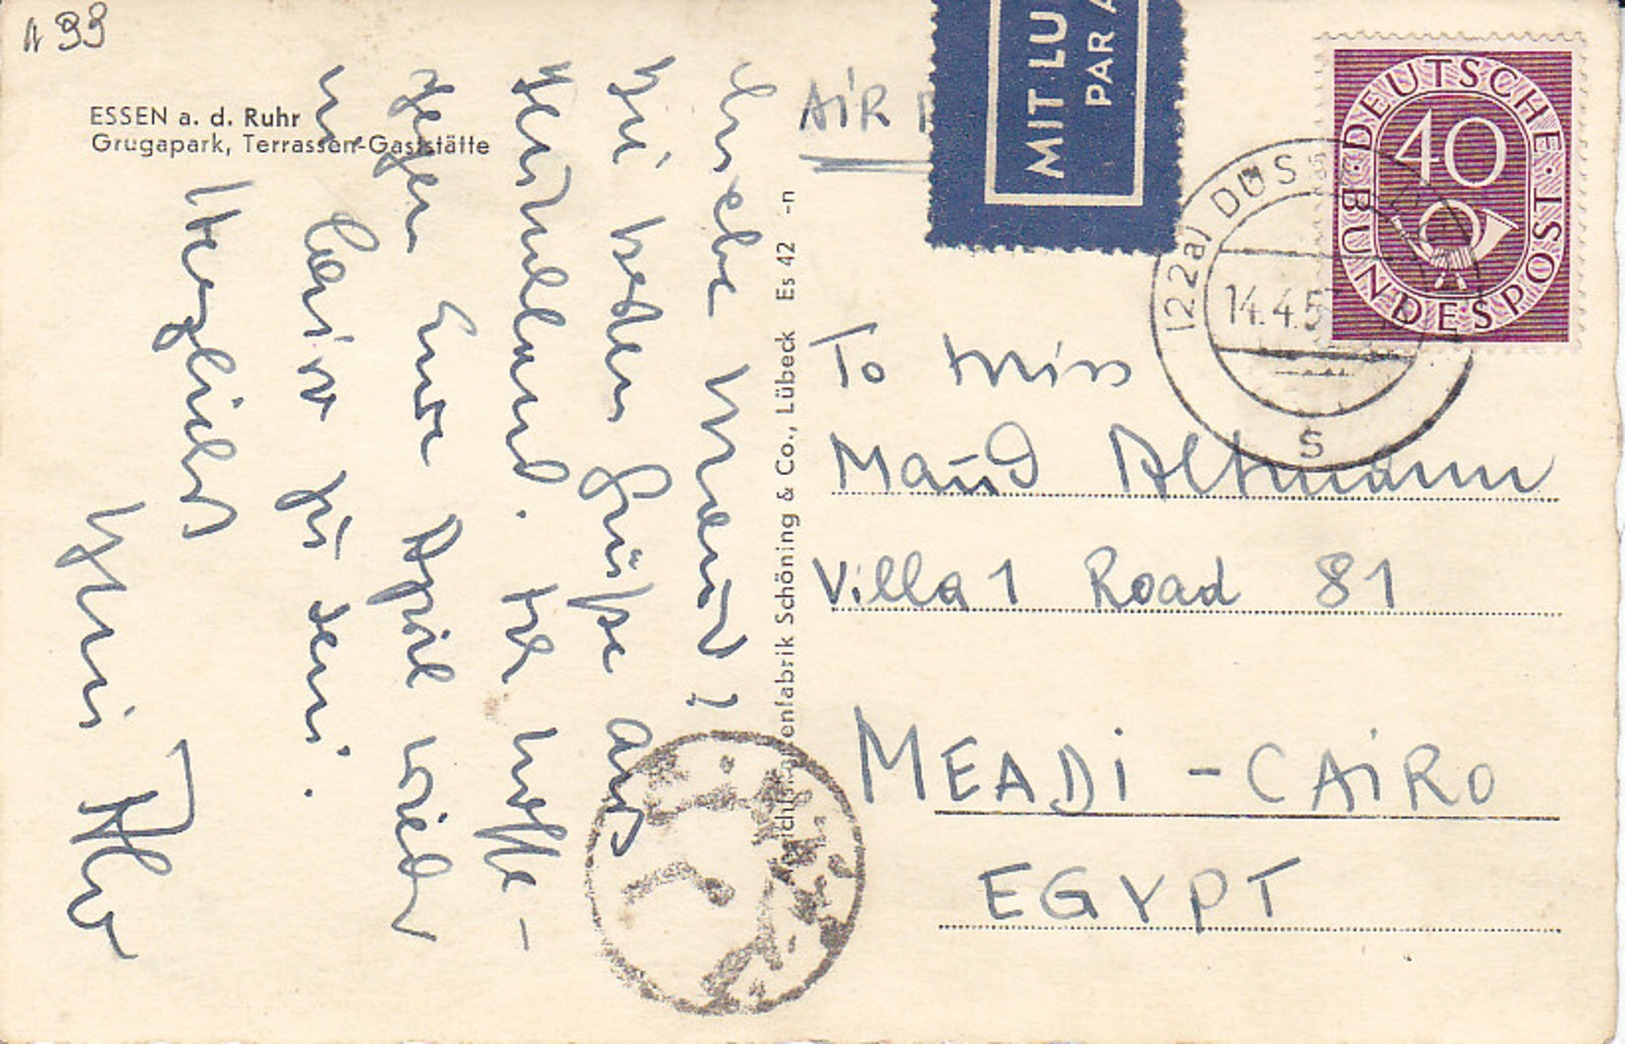 n 99
ESSEN a. d. Ruhr
Grugapark, Terrassen-Gaststätte
Maud!
Grüße aus
Deutschland. Ich hoffe
gegen Ende April wieder
in Cairo zu sein.
Herzlichst
Ansichtskartenfabrik Schöning & Co., Lübeck Es 42 -n
AiR
MIT LU
PAR A
DEUTSCHE BUNDESPOST
40
(22a) DÜS
14.4.5
s
To Miss
Maud Altmann
Villa 1 Road 81
MEADi - CAiRO
EGYPT